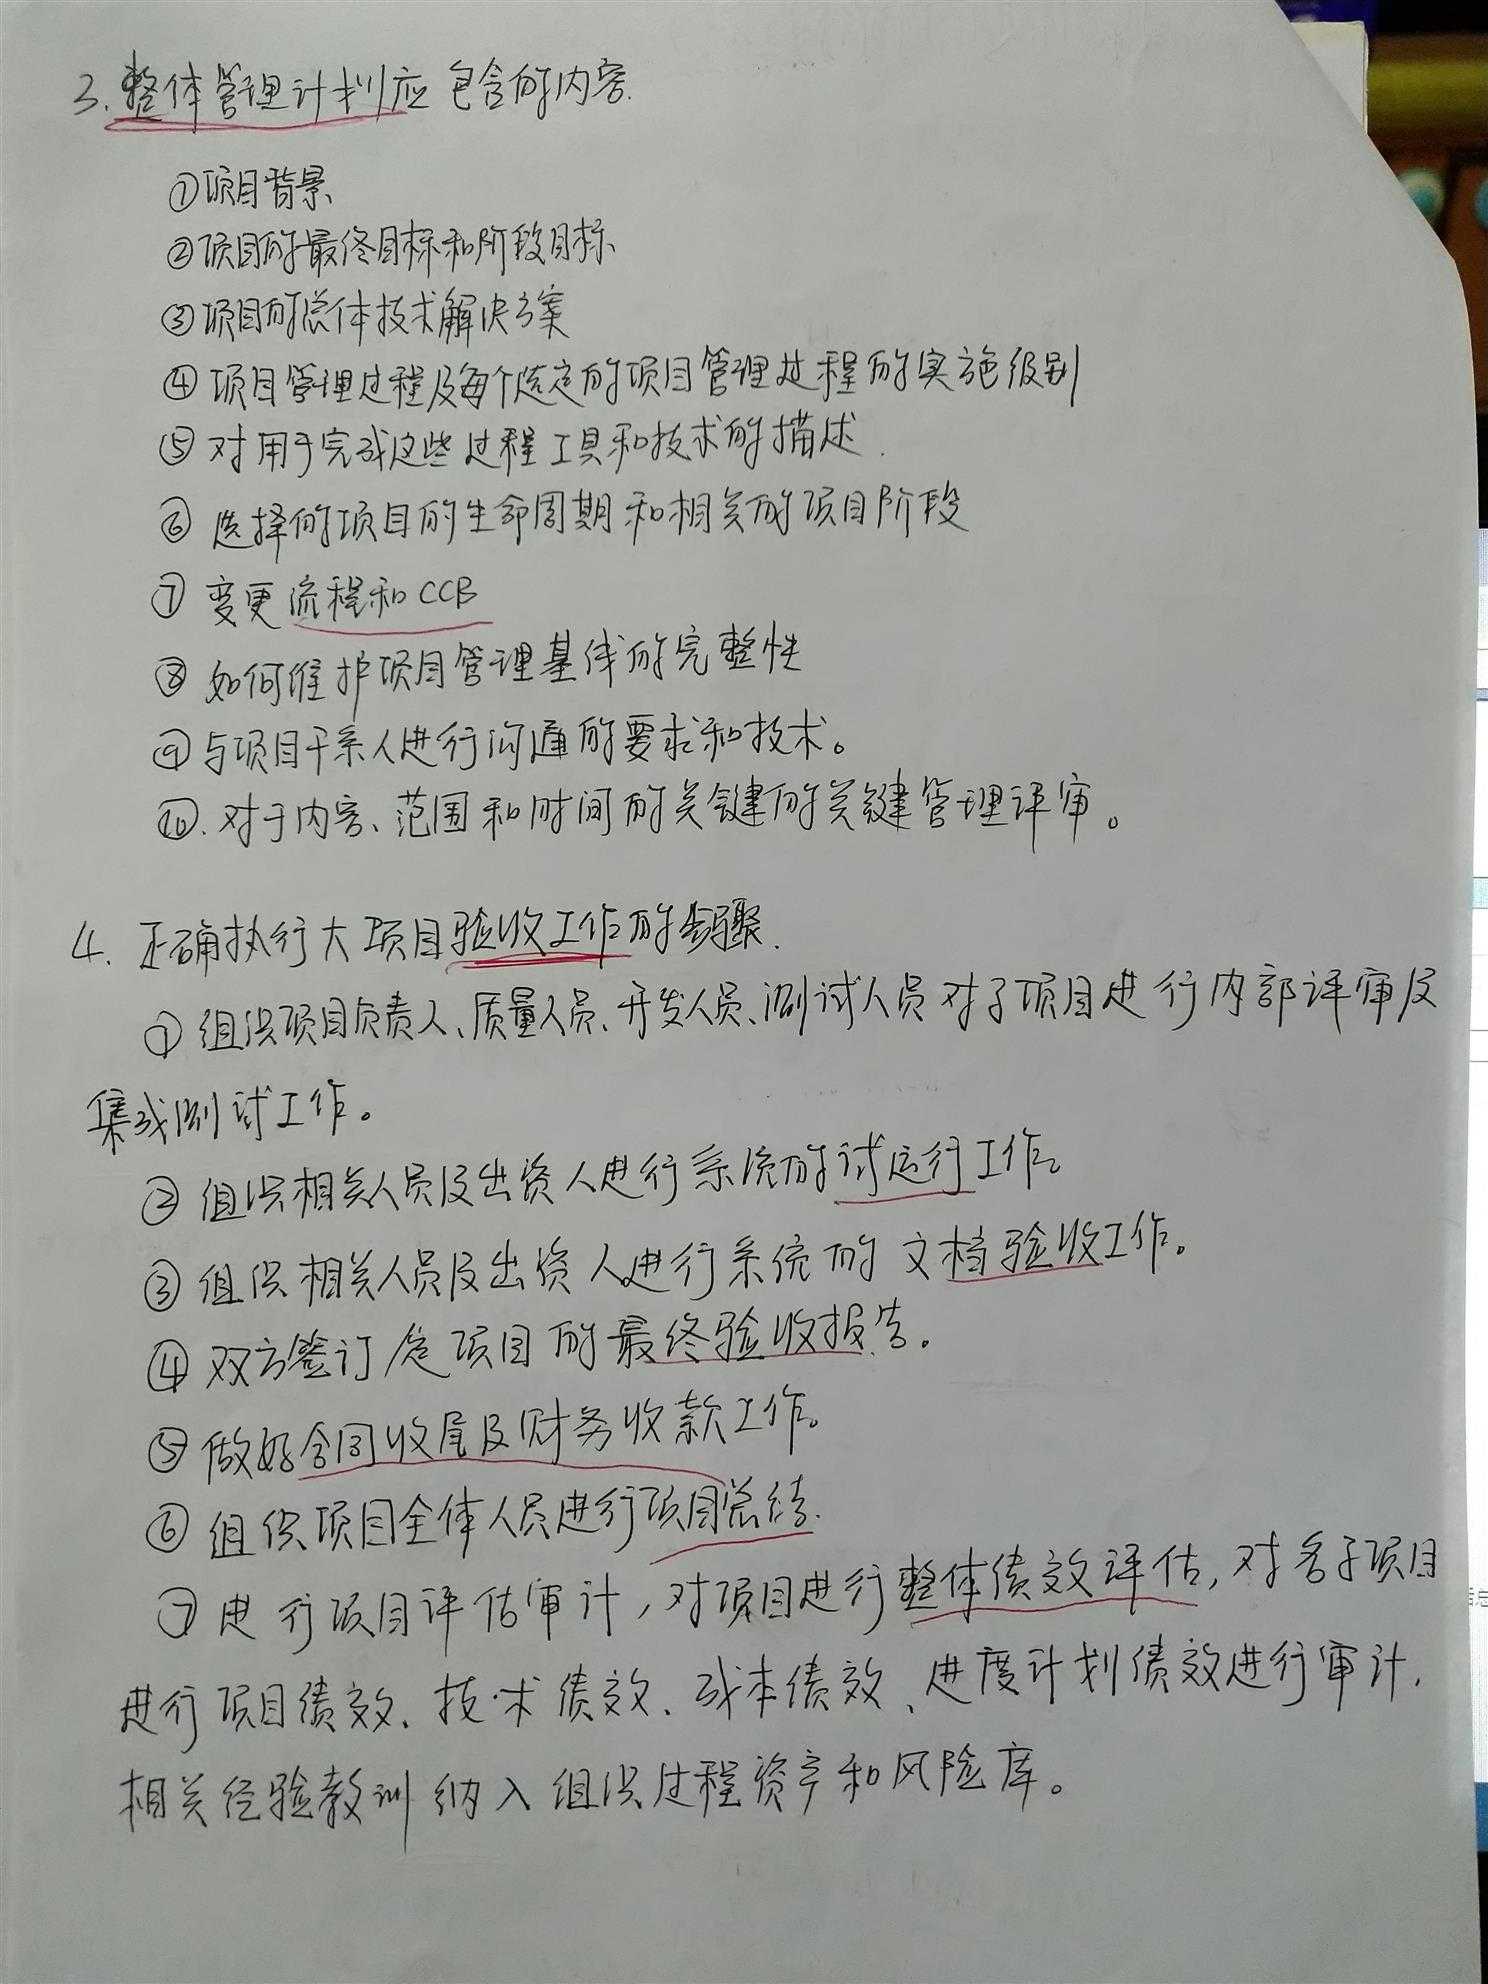 3.整体管理计划应包含的内容.
①项目背景
②项目的最终目标和阶段目标
③项目的总体技术解决方案
④项目管理过程及每个选定的项目管理过程的实施级别
⑤对用于完成这些过程工具和技术的描述.
⑥选择的项目的生命周期和相关的项目阶段
⑦变更流程和CCB
⑧如何维护项目管理基线的完整性
⑨与项目干系人进行沟通的要求和技术。
⑩.对于内容、范围和时间的关键的关键管理评审。
4.正确执行大项目验收工作的步骤.
①组织项目负责人、质量人员、开发人员、测试人员对子项目进行内部评审及
集成测试工作。
②组织相关人员及出资人进行系统的试运行工作。
③组织相关人员及出资人进行系统的文档验收工作。
④双方签订定项目的最终验收报告。
⑤做好合同收尾及财务收款工作。
⑥组织项目全体人员进行项目总结.
⑦进行项目评估审计,对项目进行整体绩效评估,对各子项目
进行项目绩效、技术绩效、成本绩效、进度计划绩效进行审计,
相关经验教训纳入组织过程资产和风险库。